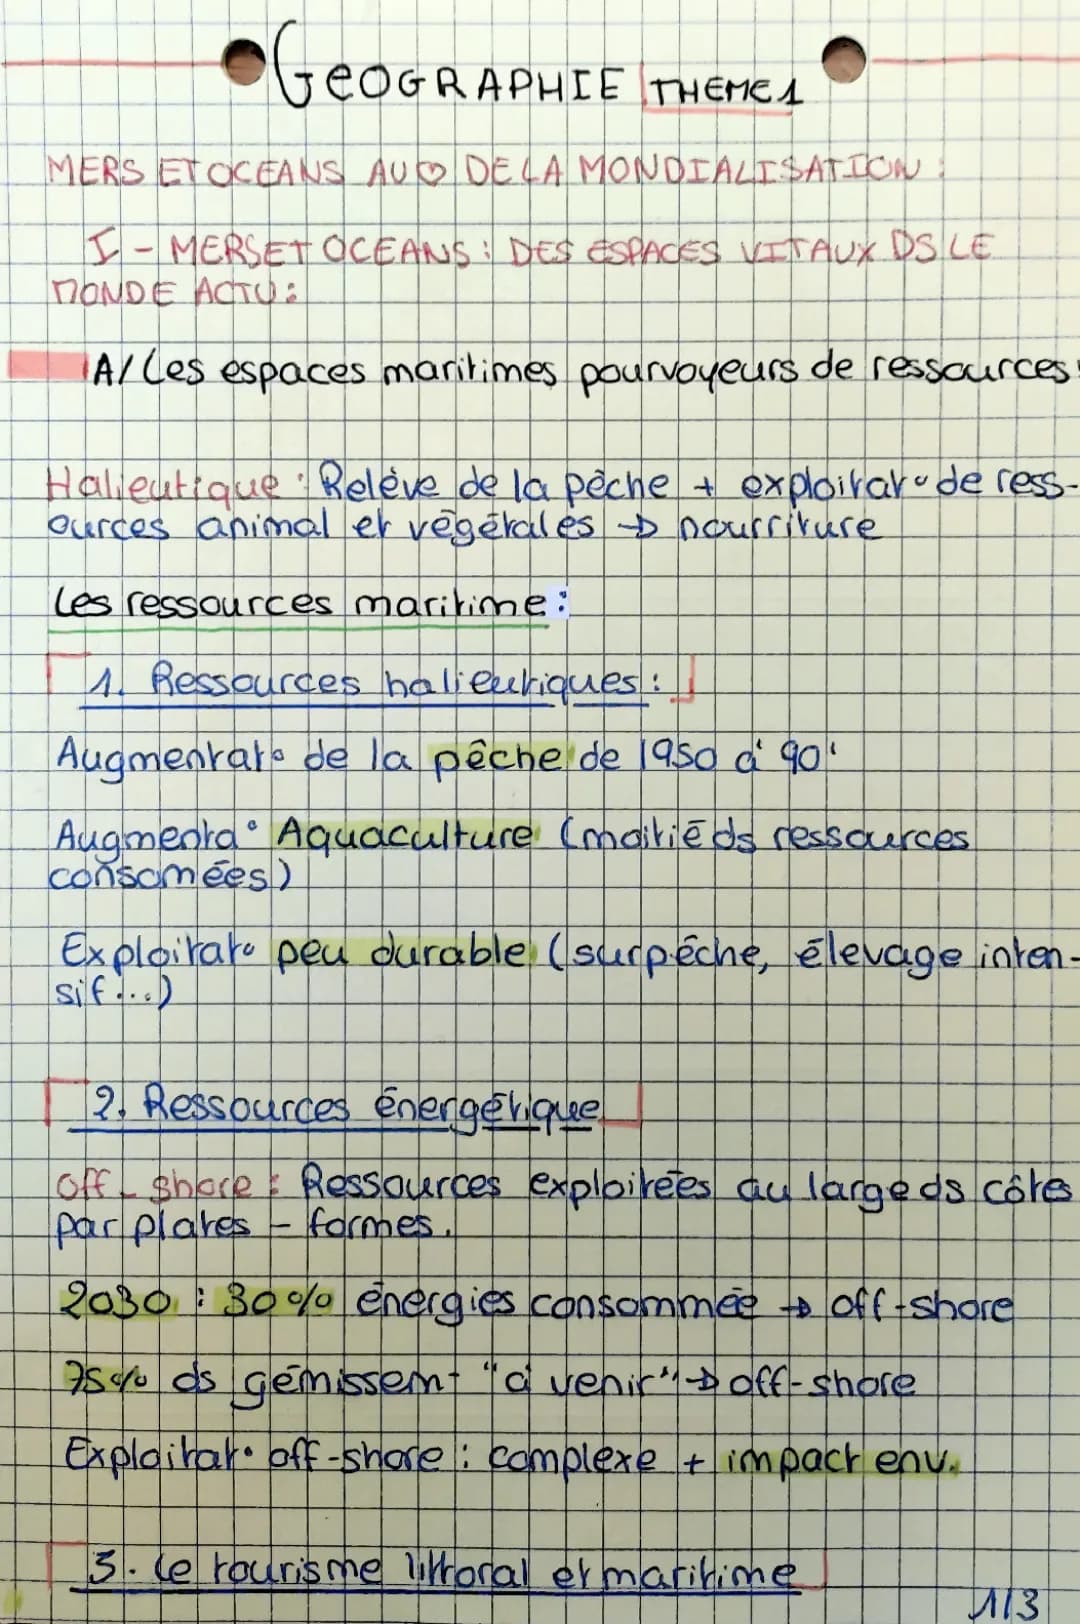 GEOGRAPHIE THEME 1
MERS ET OCEANS AU ♡ DE LA MONDIALISATION :
I - MERS ET OCEANS : DES ESPACES VITAUX DS LE
MONDE ACTU :
A/ Les espaces maritimes pourvoyeurs de ressources :
Halieutique : Relève de la pêche + exploitat° de ress-
ources animal et végétales → nourriture
Les ressources maritime :
1. Ressources halieutiques :
Augmentat° de la pêche de 1950 à 90'
Augmenta° Aquaculture (moitié ds ressources
consomées)
Exploitat° peu durable (surpêche, élevage inten-
sif...)
2. Ressources énergétique
off-shore : Ressources exploitées au large ds côtes
par plates-formes.
2030 : 30% énergies consommée → off-shore
75% ds gémissemt "à venir" → off-shore
Exploitat° off-shore : complexe + impact env.
3. Le tourisme littoral et maritime
1/3